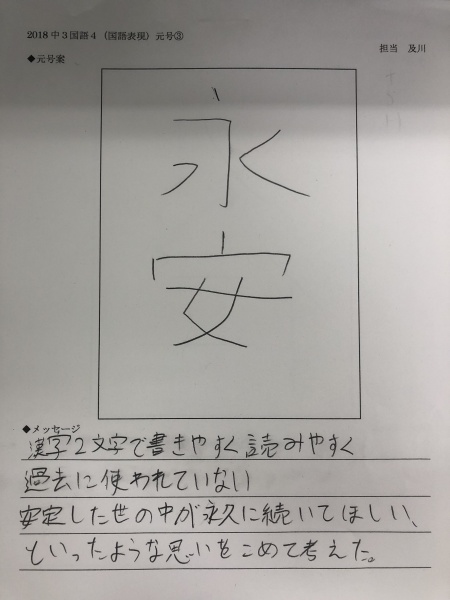 2018 中3国語4（国語表現）元号③
担当　及川
◆元号案
永
安
◆メッセージ
漢字2文字で書きやすく読みやすく
過去に使われていない
安定した世の中が永久に続いてほしい、
といったような思いをこめて考えた。